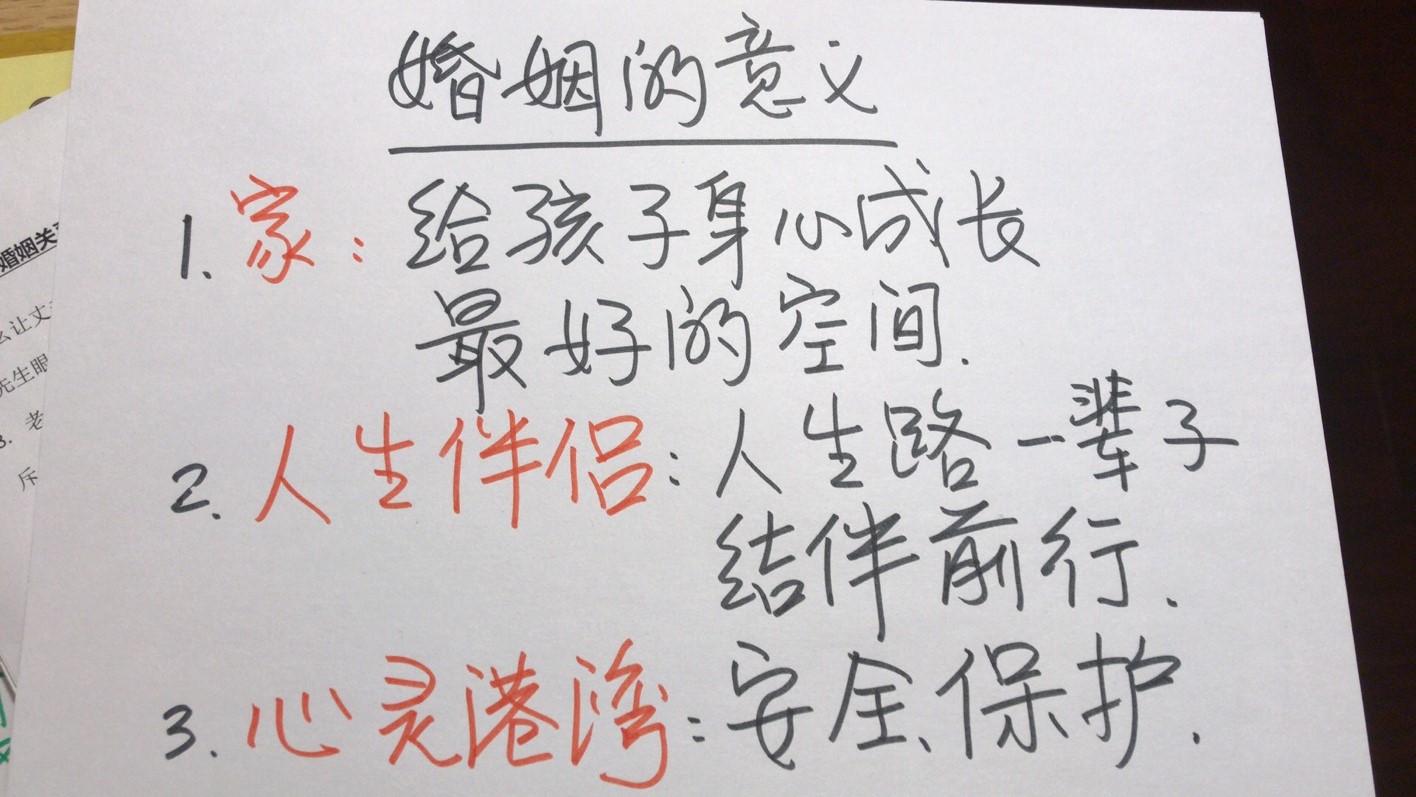 婚姻的意义
1. 家：给孩子身心成长
最好的空间.
2. 人生伴侣：人生路一辈子
结伴前行.
3. 心灵港湾：安全、保护.
婚姻关
让丈
先生眼
3. 老
斥